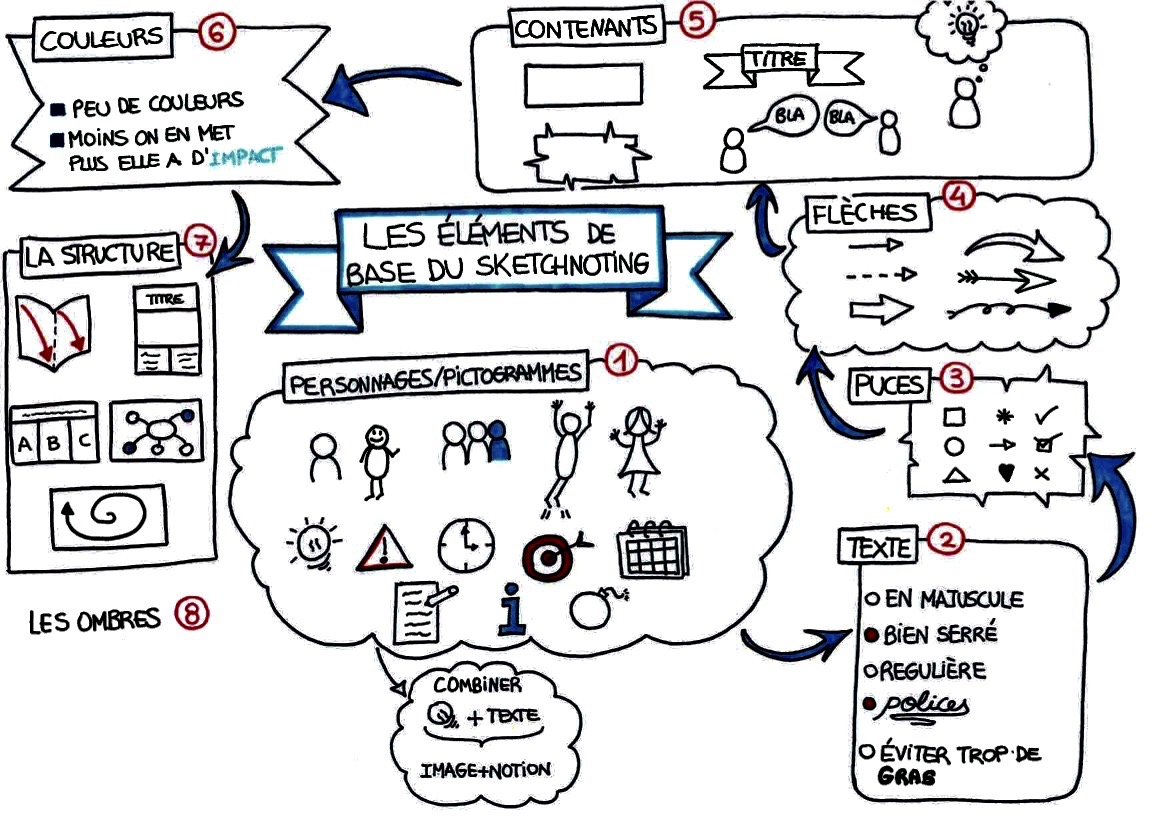 LES ÉLÉMENTS DE
BASE DU SKETCHNOTING
PERSONNAGES/PICTOGRAMMES 1
COMBINER
+ TEXTE
IMAGE+NOTION
TEXTE 2
EN MAJUSCULE
BIEN SERRÉ
REGULIÈRE
polices
ÉVITER TROP DE
GRAS
PUCES 3
FLÈCHES 4
CONTENANTS 5
TITRE
BLA
BLA
COULEURS 6
PEU DE COULEURS
MOINS ON EN MET
PLUS ELLE A D'IMPACT
LA STRUCTURE 7
TITRE
A B C
LES OMBRES 8